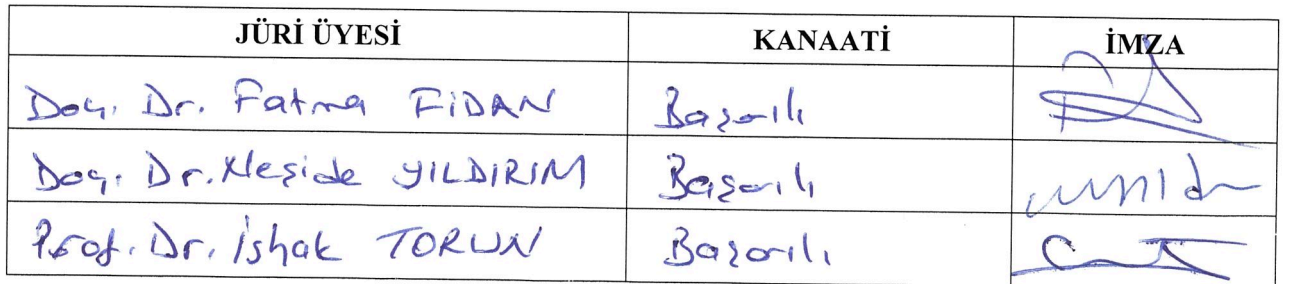 JÜRİ ÜYESİ KANAATİ İMZA
Doç. Dr. Fatma FİDAN Başarılı
Doç. Dr. Neşide YILDIRIM Başarılı
Prof. Dr. İshak TORUN Başarılı